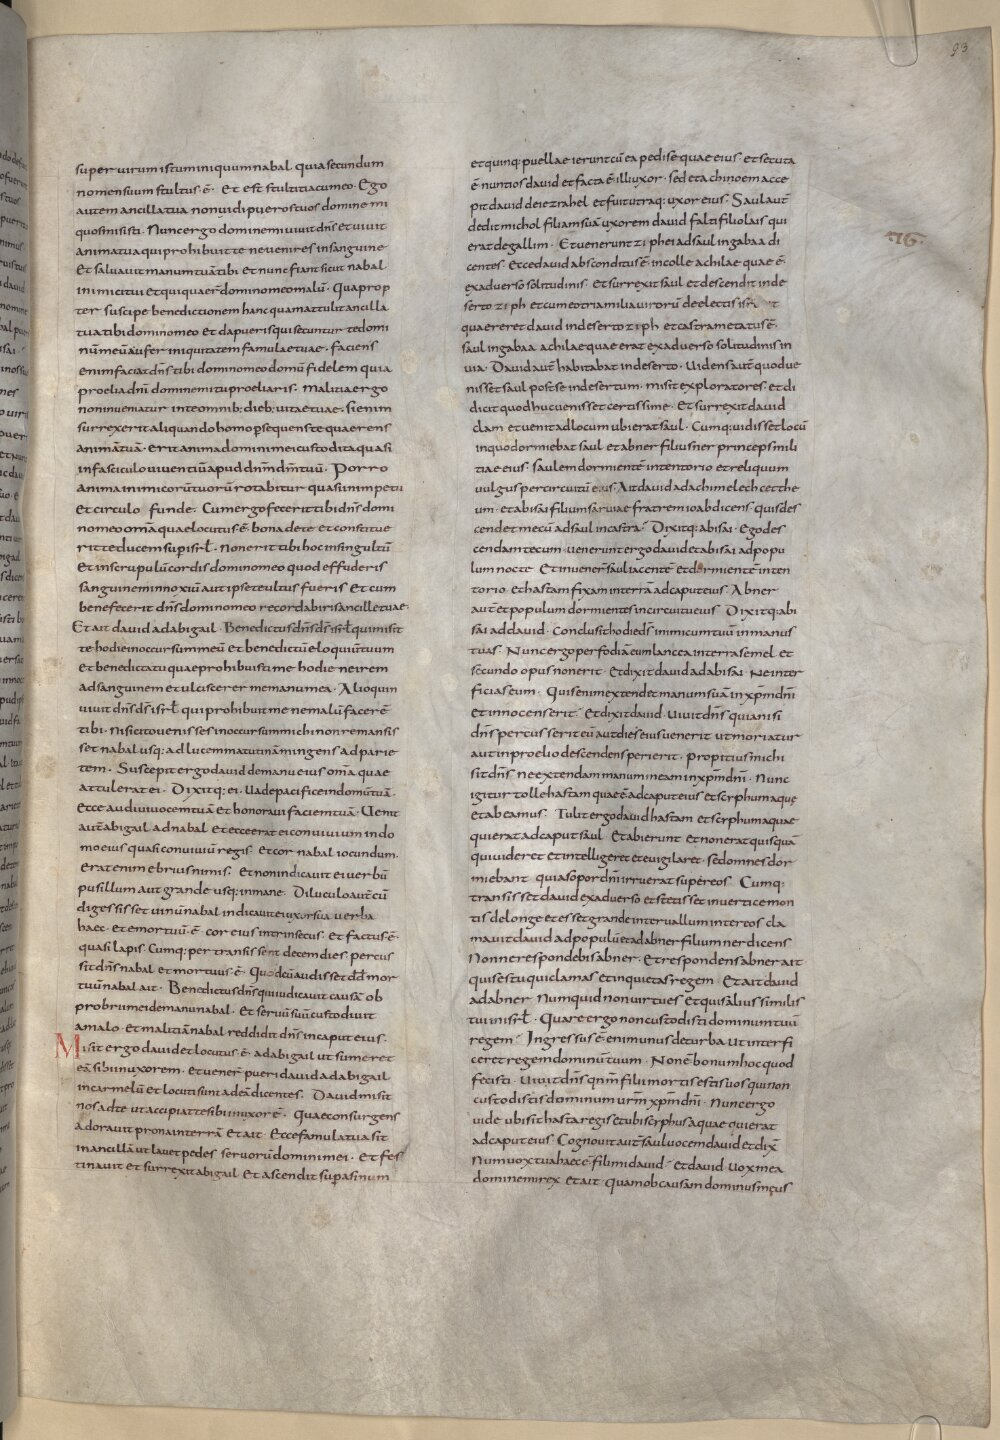 93
super virum istum iniquum nabal quia secundum
nomen suum stultus ē. Et est stultitia cum eo. Ego
autem ancilla tua non uidi pueros tuos domine mi
quos misisti. Nunc ergo domine mi uiuit dn̄s et uiuit
anima tua qui prohibuit te ne uenires in sanguine
Et saluauit manum tuā tibi et nunc fiant sicut nabal
inimici tui et qui quaerr̄ domino meo malū. Quaprop
ter suscipe benedictionem hanc quam attulit ancilla
tua tibi domino meo et da pueris qui secuntur te domi
nū meū aufer iniquitatem famulae tuae. faciens
enim faciat dn̄s tibi domino meo domū fidelem quia
proelia dn̄i domine mi tu proeliaris. Malitia ergo
non inueniatur in te omnib; dieb; uitae tuae. Si enim
surrexerit aliquando homo p̄sequens te quaerens
animā tuā. erit anima domini mei custodita quasi
in fasciculo uiuentiū apud dn̄m dm̄ tuū. Porro
anima inimicorū tuorū rotabitur quasi in impetu
et circulo funde. Cum ergo fecerit tibi dn̄s domi
no meo om̄a quae locutus ē. bona de te et constitue
rit te ducem sup isrl̄. Non erit tibi hoc in singultū
et in scrupulū cordis domino meo quod effuderis
sanguinem innoxiū aut ipse te ultus fueris Et cum
benefecerit dn̄s domino meo recordabiris ancillae tuae.
Et ait dauid ad abigail. Benedictus dn̄s ds̄ isrl̄ qui misit
te hodie in occursum meū et benedictū eloquiū tuum
et benedicta tu quae prohibuisti me hodie ne irem
ad sanguinem et ulciscerer me manu mea. Alioquin
uiuit dn̄s ds̄ isrl̄ qui prohibuit me ne malū facerē
tibi. Nisi cito uenisses in occursum michi non remansis
set nabal usq; ad lucem matutinā mingens ad parie
tem. Suscepit ergo dauid de manu eius om̄a quae
attulerat ei. Dixitq; ei. Uade pacifice in domū tuā.
Ecce audiui uocem tuā et honoraui faciem tuā. Uenit
aut̄ abigail ad nabal et ecce erat ei conuiuium in do
mo eius quasi conuiuiū regis. et cor nabal iocundum.
erat enim ebrius nimis. Et non indicauit ei uerbū
pusillum aut grande usq; in mane. Diluculo aut̄ cū
digessisset uinū nabal indicauit ei uxor sua uerba
haec. et emortuū ē cor eius intrinsecus. et factus ē.
quasi lapis. Cumq; pertransissent decem dies. percus
sit dn̄s nabal et mortuus ē. Quod cū audisset dd̄ mor
tuū nabal ait. Benedictus dn̄s qui iudicauit causā ob
probrii mei de manu nabal. Et seruū suū custodiuit
a malo. et malitiā nabal reddidit dn̄s in caput eius.
Misit ergo dauid et locutus ē. ad abigail ut sumeret
eā sibi in uxorem. et uener̄ pueri dauid ad abigail
in carmelū et locuti sunt ad eā dicentes. Dauid misit
nos ad te ut accipiat te sibi in uxorē. Quae consurgens
adorauit prona in terrā et ait. Ecce famula tua sit
in ancillā ut lauet pedes seruorū domini mei. et fes
tinauit et surrexit abigail et ascendit sup asinum
et quinq; puellae ierunt cū ea pedisequae eius. et secuta
ē nuntios dauid et facta ē. illi uxor. sed et achinoem acce
pit dauid de iezrahel et fuit utraq; uxor eius. Saul aut̄
dedit michol filiam suā uxorem dauid falti filio lais qui
erat de gallim. Et uenerunt ziphei ad saul in gabaa di
centes. Ecce dauid absconditus ē. in colle achilae quae ē.
ex aduerso solitudinis. Et surrexit saul et descendit in de
serto ziph et cum eo tria milia uirorū de electis isrl̄ ut
quaereret dauid in deserto ziph et castrametatus ē.
saul in gabaa achilae quae erat ex aduerso solitudinis in
uia. Dauid aut̄ habitabat in deserto. Uidens aut̄ quod ue
nisset saul post se in desertum. misit exploratores. et di
dicit quod huc uenisset certissime. Et surrexit dauid
clam et uenit ad locum ubi erat saul. Cumq; uidisset locū
in quo dormiebat saul et abner filius ner princeps mili
tiae eius. saulem dormientē in tentorio et reliquum
uulgus per circuitū eius. Ait dauid ad achimelech cetthe
um. et abisai filium saruiae fratrem ioab dicens. quis des
cendet mecū ad saul in castra. Dixitq; abisai. Ego des
cendam tecum. uenerunt ergo dauid et abisai ad popu
lum nocte. Et inuener̄ saul iacentē et dormientē in ten
torio. et hastam fixam in terrā ad caput eius. Abner
aut̄ et populum dormientes in circuitu eius. Dixitq; abi
sai ad dauid. Conclusit hodie ds̄ inimicum tuū in manus
tuas. Nunc ergo perfodiā eum lancea in terra semel et
secundo opus non erit. Et dixit dauid ad abisai. Ne inter
ficias eum. Quis enim extendet manum suā in xp̄m dn̄i
et innocens erit. Et dixit dauid. Uiuit dn̄s quia nisi
dn̄s percusserit eū aut dies eius uenerit ut moriatur
aut in proelio descendens perierit. propitius michi
sit dn̄s ne extendam manum meam in xp̄m dn̄i. Nunc
igitur tolle hastam quae ē ad caput eius et scyphum aquę
et abeamus. Tulit ergo dauid hastam et scyphum aquae
qui erat ad caput saul. Et abierunt et non erat quisquā
qui uideret et intelligeret et euigilaret. sed omnes dor
miebant. quia sopor dn̄i irruerat super eos. Cumq;
transisset dauid ex aduerso et stetisset in uertice mon
tis de longe et esset grande interuallum inter eos cla
mauit dauid ad populū et ad abner filium ner dicens
Nonne respondebis abner. Et respondens abner ait
quis es tu qui clamas et inquietas regem. Et ait dauid
ad abner. Numquid non uir tu es et quis alius similis
tui in isrl̄. Quare ergo non custodisti dominum tuū
regem. Ingressus ē enim unus de turba ut interfi
ceret regem dominū tuum. Non ē bonum hoc quod
fecisti. Uiuit dn̄s qn̄m filii mortis estis uos qui non
custodistis dominum urm̄ xp̄m dn̄i. Nunc ergo
uide ubi sit hasta regis et ubi scyphus aquae qui erat
ad caput eius. Cognouit aut̄ saul uocem dauid et dix̄
Num uox tua haec ē. fili mi dauid. Et dauid. Uox mea
domine mi rex. et ait. Quam ob causam dominus meus